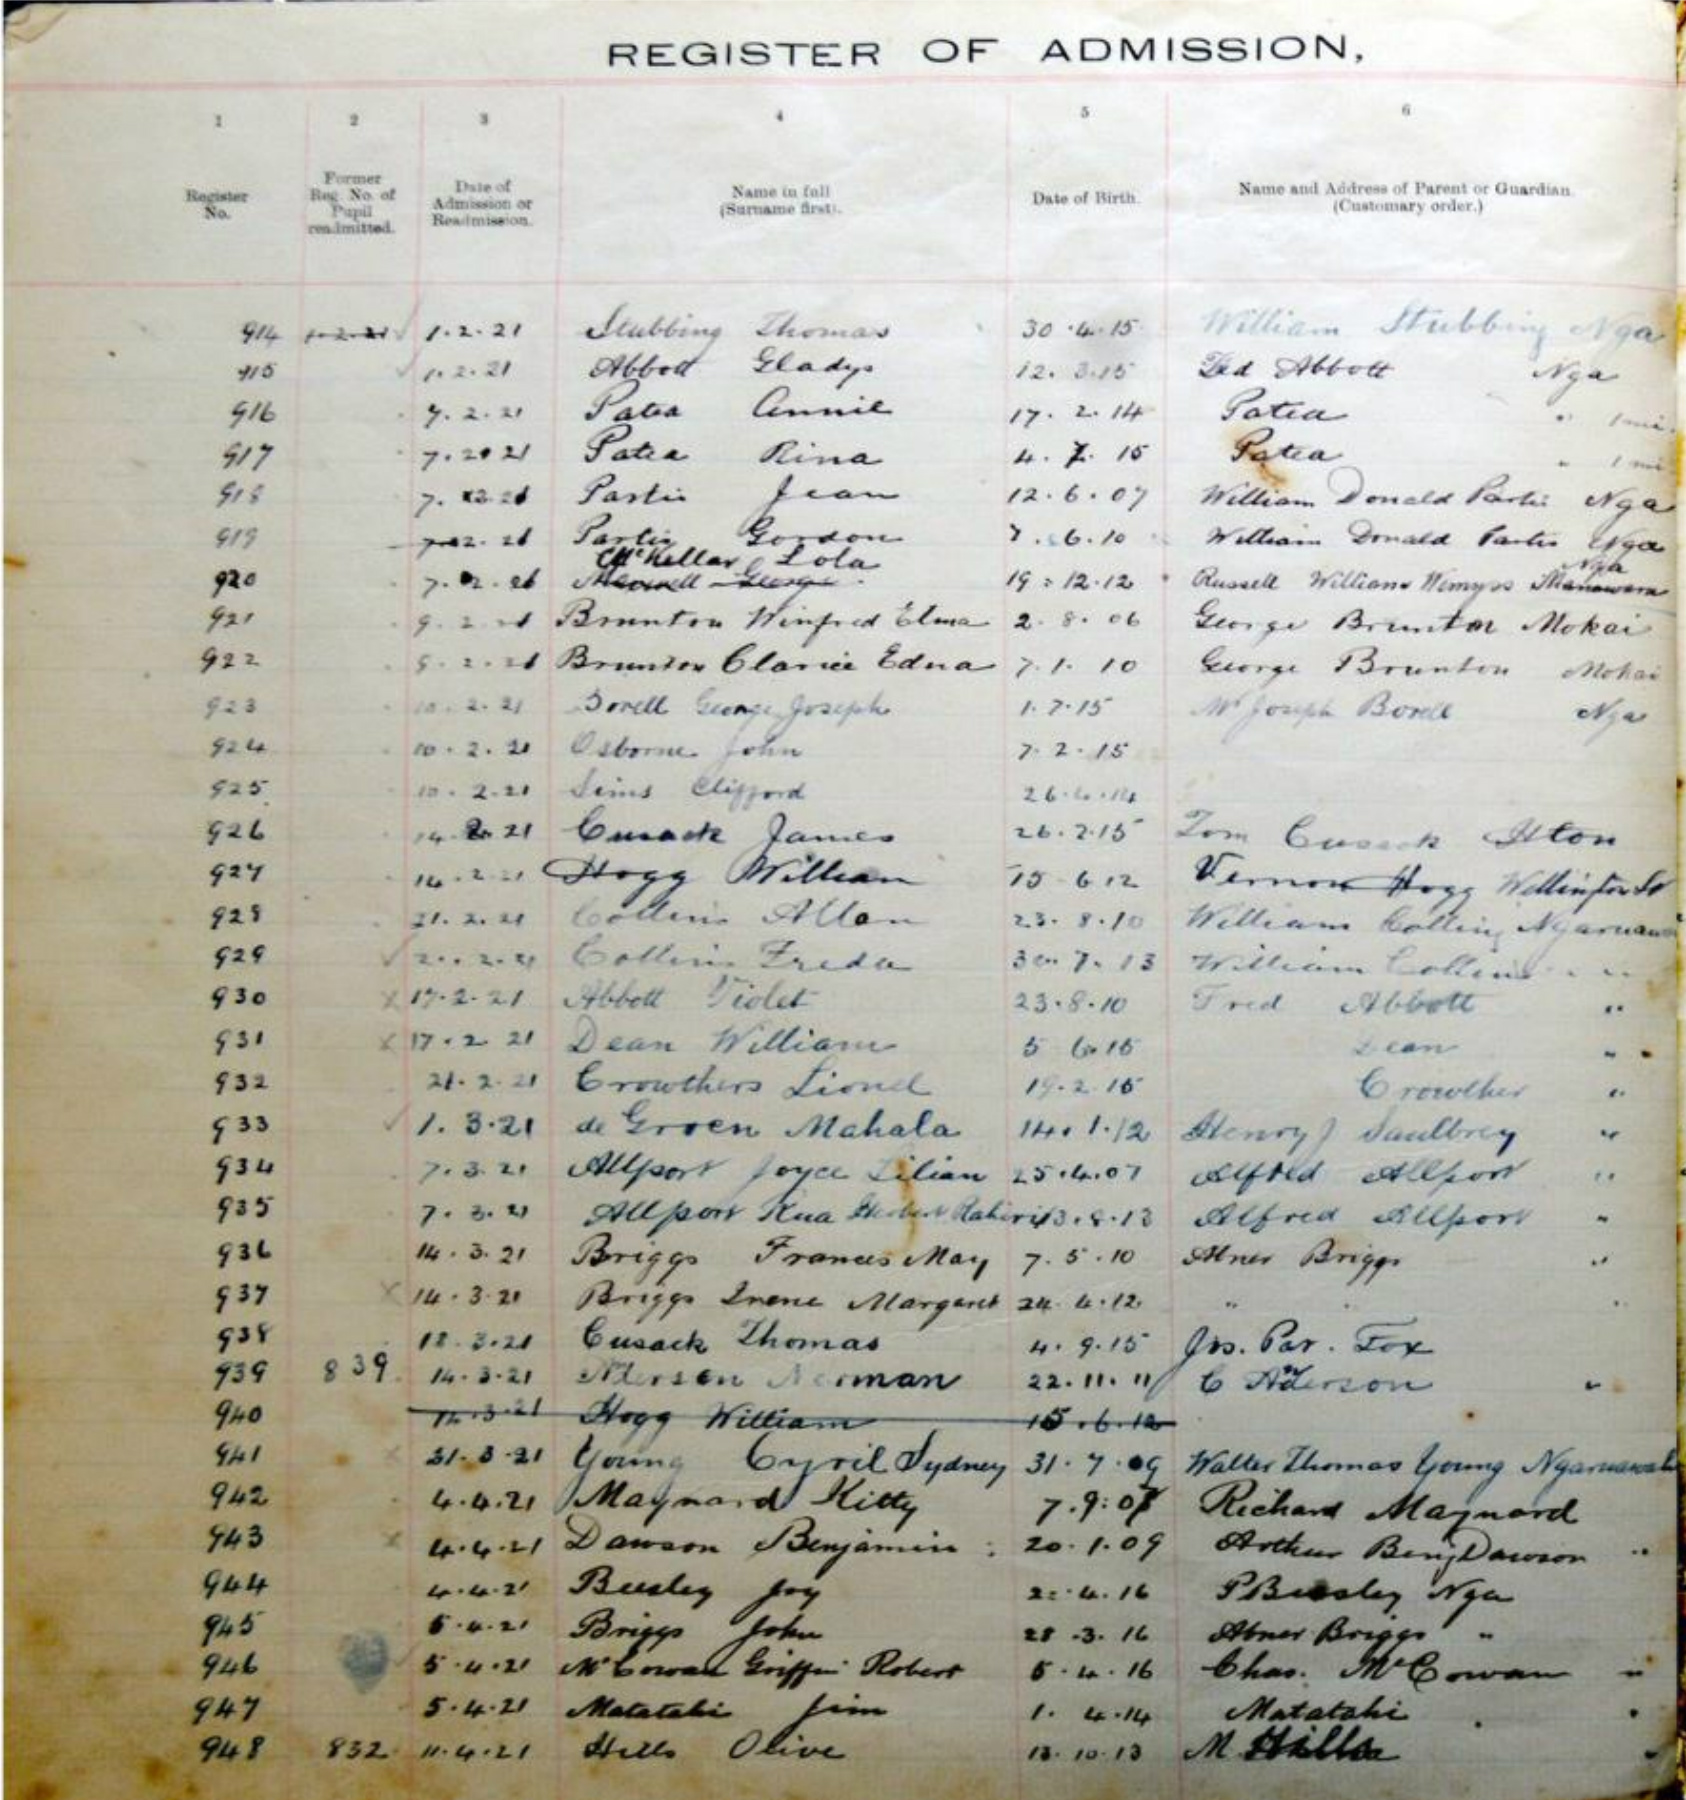 REGISTER OF ADMISSION,
1 2 3 4 5 6
Register No. Former Reg. No. of Pupil readmitted. Date of Admission or Readmission. Name in full (Surname first). Date of Birth. Name and Address of Parent or Guardian. (Customary order.)
914 1.2.21 1.2.21 Stubbing Thomas 30.4.15 William Stubbing Nga
915 1.2.21 Abbott Gladys 12.3.15 Abbott Nga
916 7.2.21 Patea Annie 17.2.14 Patea " 1 mi.
917 7.2.21 Patea Rina 4.7.15 Patea " 1 mi
918 7.2.21 Partis Jean 12.6.07 William Donald Partis Nga
919 7.2.21 Partis Gordon 7.6.10 William Donald Partis Nga
McKellar Lola Nga
920 7.2.21 George 19.12.12 Russell William Wemyss
921 9.2.21 Brunton Winifred Elma 2.8.06 George Brunton Mokai
922 9.2.21 Brunton Clarice Edna 7.1.10 George Brunton Mokai
923 10.2.21 Borell George Joseph 1.7.15 Mr Joseph Borell Nga
924 10.2.21 Osborne John 7.2.15
925 10.2.21 Sims Clifford 26.4.14
926 14.2.21 Cusack James 26.2.15 Tom Cusack
927 14.2.21 Hogg William 15 6 12 Vernon Hogg Wellington St
928 21.2.21 Collins Allan 23.8.10 William Collins
929 2.21 Collins Freda 30.7.13 William Collins " "
930 17.2.21 Abbott Violet 23.8.10 Fred Abbott "
931 17.2 21 Dean William 5 6 15 Dean "
932 21.2.21 Crowthers Lionel 19.2.15 Crowther "
933 1.3.21 de Groen Mahala 14.1.12 Henry J Saulbrey "
934 7.3.21 Allport Joyce Lilian 25.4.07 Alfred Allport "
935 7.3.21 Allport Rua Herbert 13.8.13 Alfred Allport "
936 14.3.21 Briggs Frances May 7.5.10 Abner Briggs "
937 14.3.21 Briggs Irene Margaret 24.4.12 " "
938 18.3.21 Cusack Thomas 4.9.15 Jas. Par. Fox
939 839 14.3.21 Norman 22.11.11 C Anderson "
940 14.3.21 Hogg William 15.6.12
941 31.3.21 Young Cyril Sydney 31.7.09 Walter Thomas Young Ngaruawahia
942 4.4.21 Maynard Kitty 7.9.07 Richard Maynard
943 4.4.21 Dawson Benjamin 20.1.09 Arthur Benj Dawson "
944 4.4.21 Beesley Joy 4.16 P Beesley Nga
945 5.4.21 Briggs John 28.3.16 Abner Briggs "
946 5.4.21 McCowan Griffin Robert 5.4.16 Chas. McCowan "
947 5.4.21 Matatahi Jim 1.4.14 Matatahi "
948 832 11.4.21 Hills Olive 13.10.13 M Hills "